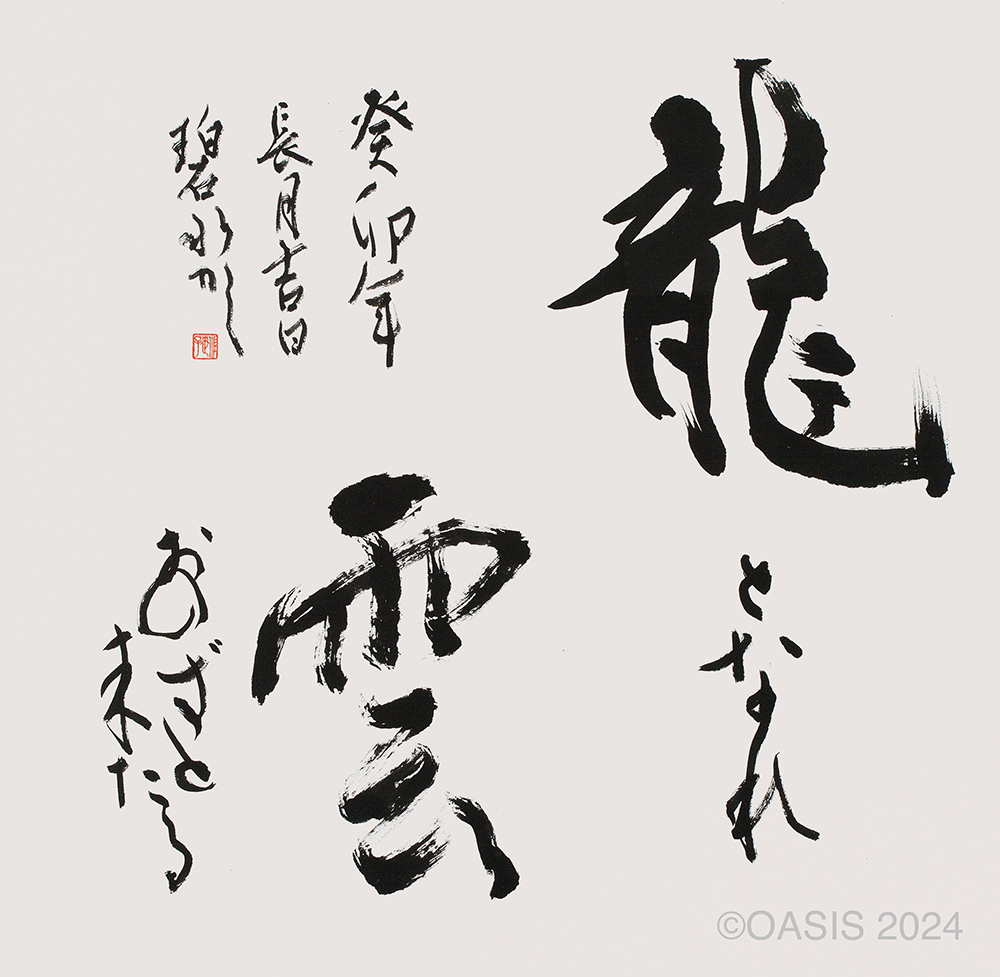 龍
となれ
雲
おのずと
来たる
癸卯年
長月吉日
碧水
©OASIS 2024